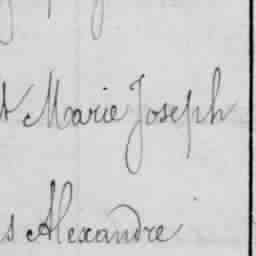 Marie Joseph
s Alexandre